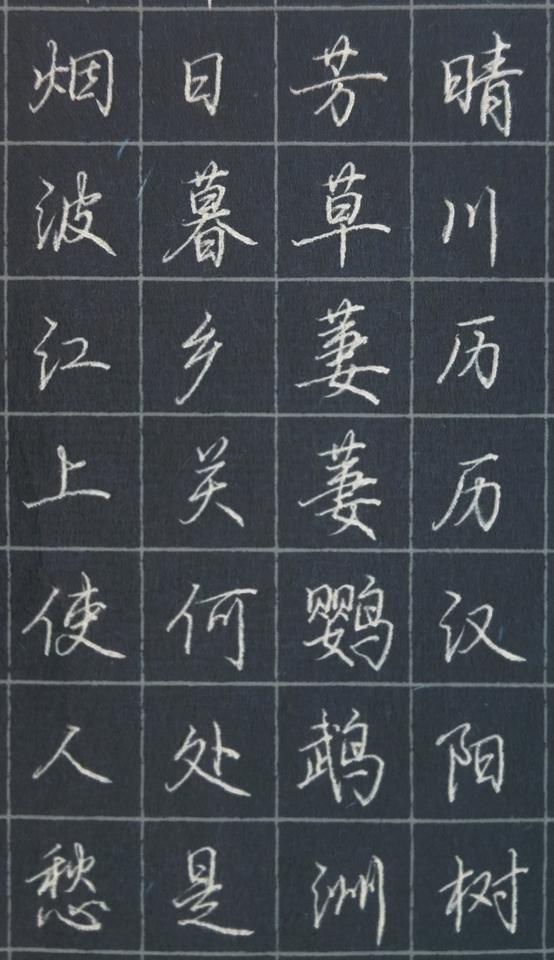 晴川历历汉阳树
芳草萋萋鹦鹉洲
日暮乡关何处是
烟波江上使人愁